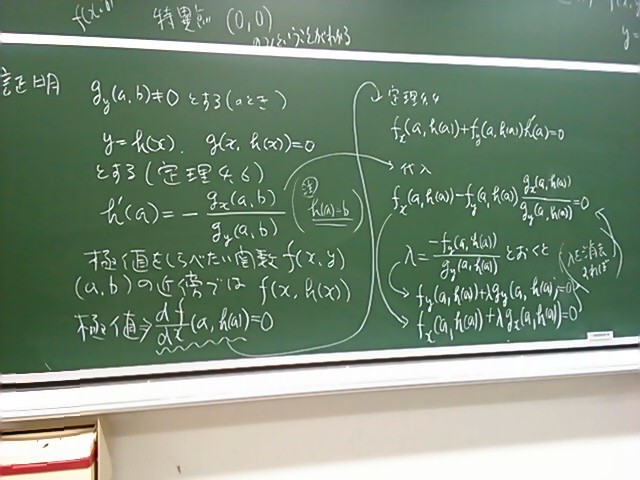 特異点 (0,0)
証明
g_y(a,b)≠0 とする(のとき)
y=h(x), g(x,h(x))=0
とする(定理4.6)
h'(a)=-g_x(a,b)/g_y(a,b)
(注) h(a)=b
極値をしらべたい関数 f(x,y)
(a,b)の近傍では f(x,h(x))
極値⇒df/dx(a,h(a))=0
定理4.4
f_x(a,h(a))+f_y(a,h(a))h'(a)=0
代入
f_x(a,h(a))-f_y(a,h(a)) g_x(a,h(a))/g_y(a,h(a))=0
λ=-f_y(a,h(a))/g_y(a,h(a)) とおくと
(λを消去すれば)
f_y(a,h(a))+λg_y(a,h(a))=0
f_x(a,h(a))+λg_x(a,h(a))=0